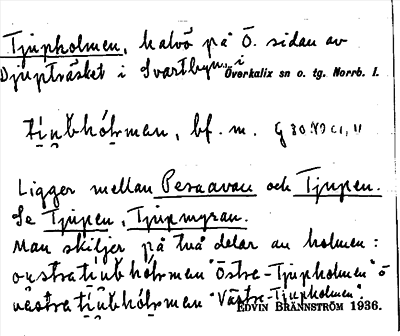 Tjupholmen, halvö på Ö. sidan av
Djupträsket i Svartbyn, i
Överkalix sn o. tg. Norrb. l.
bf. m.
Ligger mellan Pesaavan och Tjupen.
Se Tjupen, Tjupmyran.
Man skiljer på två delar av holmen:
"Östre-Tjupholmen" o
"Västre-Tjupholmen".
EDVIN BRÄNNSTRÖM 1936.